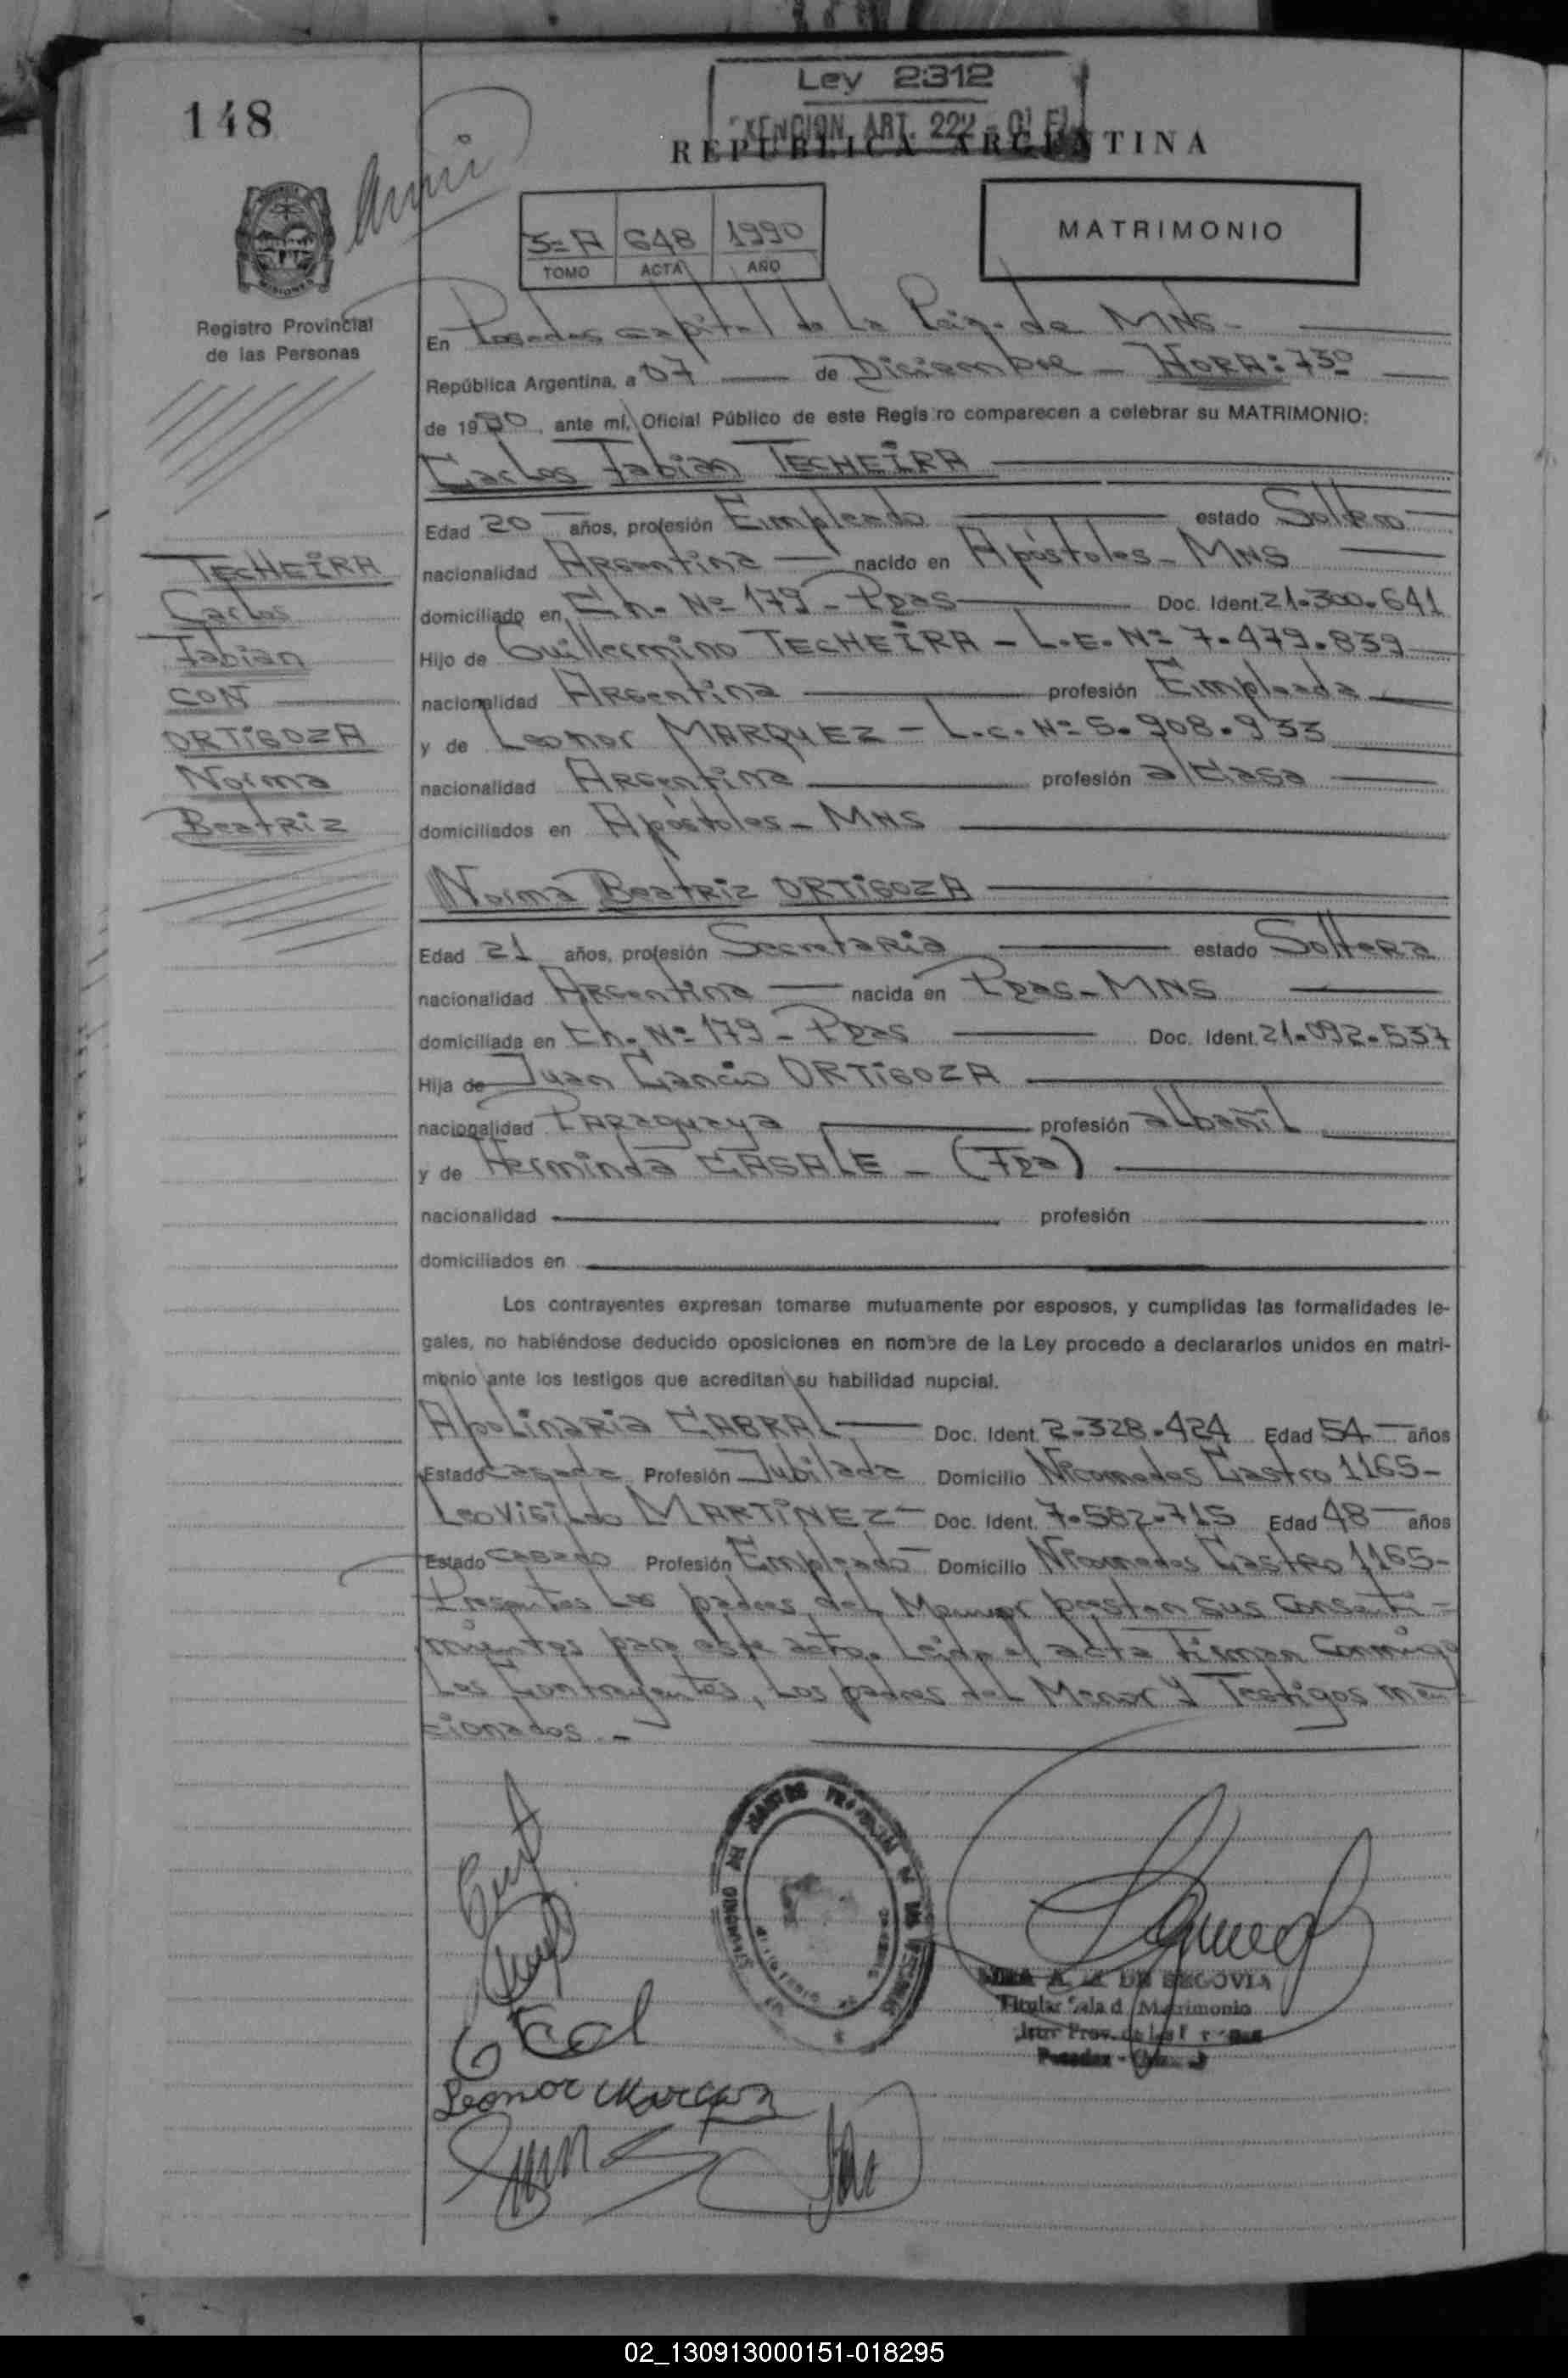 148
Ley 2312
EXENCION ART. 222
REPUBLICA ARGENTINA
3=A 648 1990
TOMO ACTA AÑO
MATRIMONIO
MISIONES
Registro Provincial
de las Personas
En Posadas capital de la de MNS-
República Argentina, a 07 de Diciembre - HORA: 730
de 1990, ante mí, Oficial Público de este Registro comparecen a celebrar su MATRIMONIO:
Carlos Fabian TECHEIRA
Edad 20 años, profesión Empleado estado Soltero
nacionalidad Argentina nacido en Apóstoles - MNS
domiciliado en Ch. Nº 179 - Pdas Doc. Ident. 21.300.641
Hijo de Guillermino TECHEIRA - L.E. Nº 7.479.839
nacionalidad Argentina profesión Empleado
y de Leonor MARQUEZ - L.C. Nº 5.908.933
nacionalidad Argentina profesión a/Casa
domiciliados en Apóstoles - MNS
TECHEIRA
Carlos
Fabian
CON
ORTIGOZA
Norma
Beatriz
Norma Beatriz ORTIGOZA
Edad 21 años, profesión Secretaria estado Soltera
nacionalidad Argentina nacida en Pdas - MNS
domiciliada en Ch. Nº 179 - Pdas Doc. Ident. 21.092.537
Hija de Juan Cancio ORTIGOZA
nacionalidad Paraguaya profesión albañil
y de Herminda CASALE - (Fda)
nacionalidad profesión
domiciliados en
Los contrayentes expresan tomarse mutuamente por esposos, y cumplidas las formalidades le-
gales, no habiéndose deducido oposiciones en nombre de la Ley procedo a declararlos unidos en matri-
monio ante los testigos que acreditan su habilidad nupcial.
Apolinaria CABRAL Doc. Ident. 2.328.424 Edad 54 años
Estado casada Profesión Jubilada Domicilio Nicomedes Castro 1165-
Leovigildo MARTINEZ - Doc. Ident. 7.582.715 Edad 48 años
Estado casado Profesión Empleado Domicilio Nicomedes Castro 1165-
Presentes los padres del Menor prestan sus consenti-
mientos para este acto. Leida el acta Firman Conmigo
Los Contrayentes, Los padres del Menor y Testigos men
cionados.-
A. DE SEGOVIA
Titular Sala d Matrimonio
Leonor Marquez
02_130913000151-018295